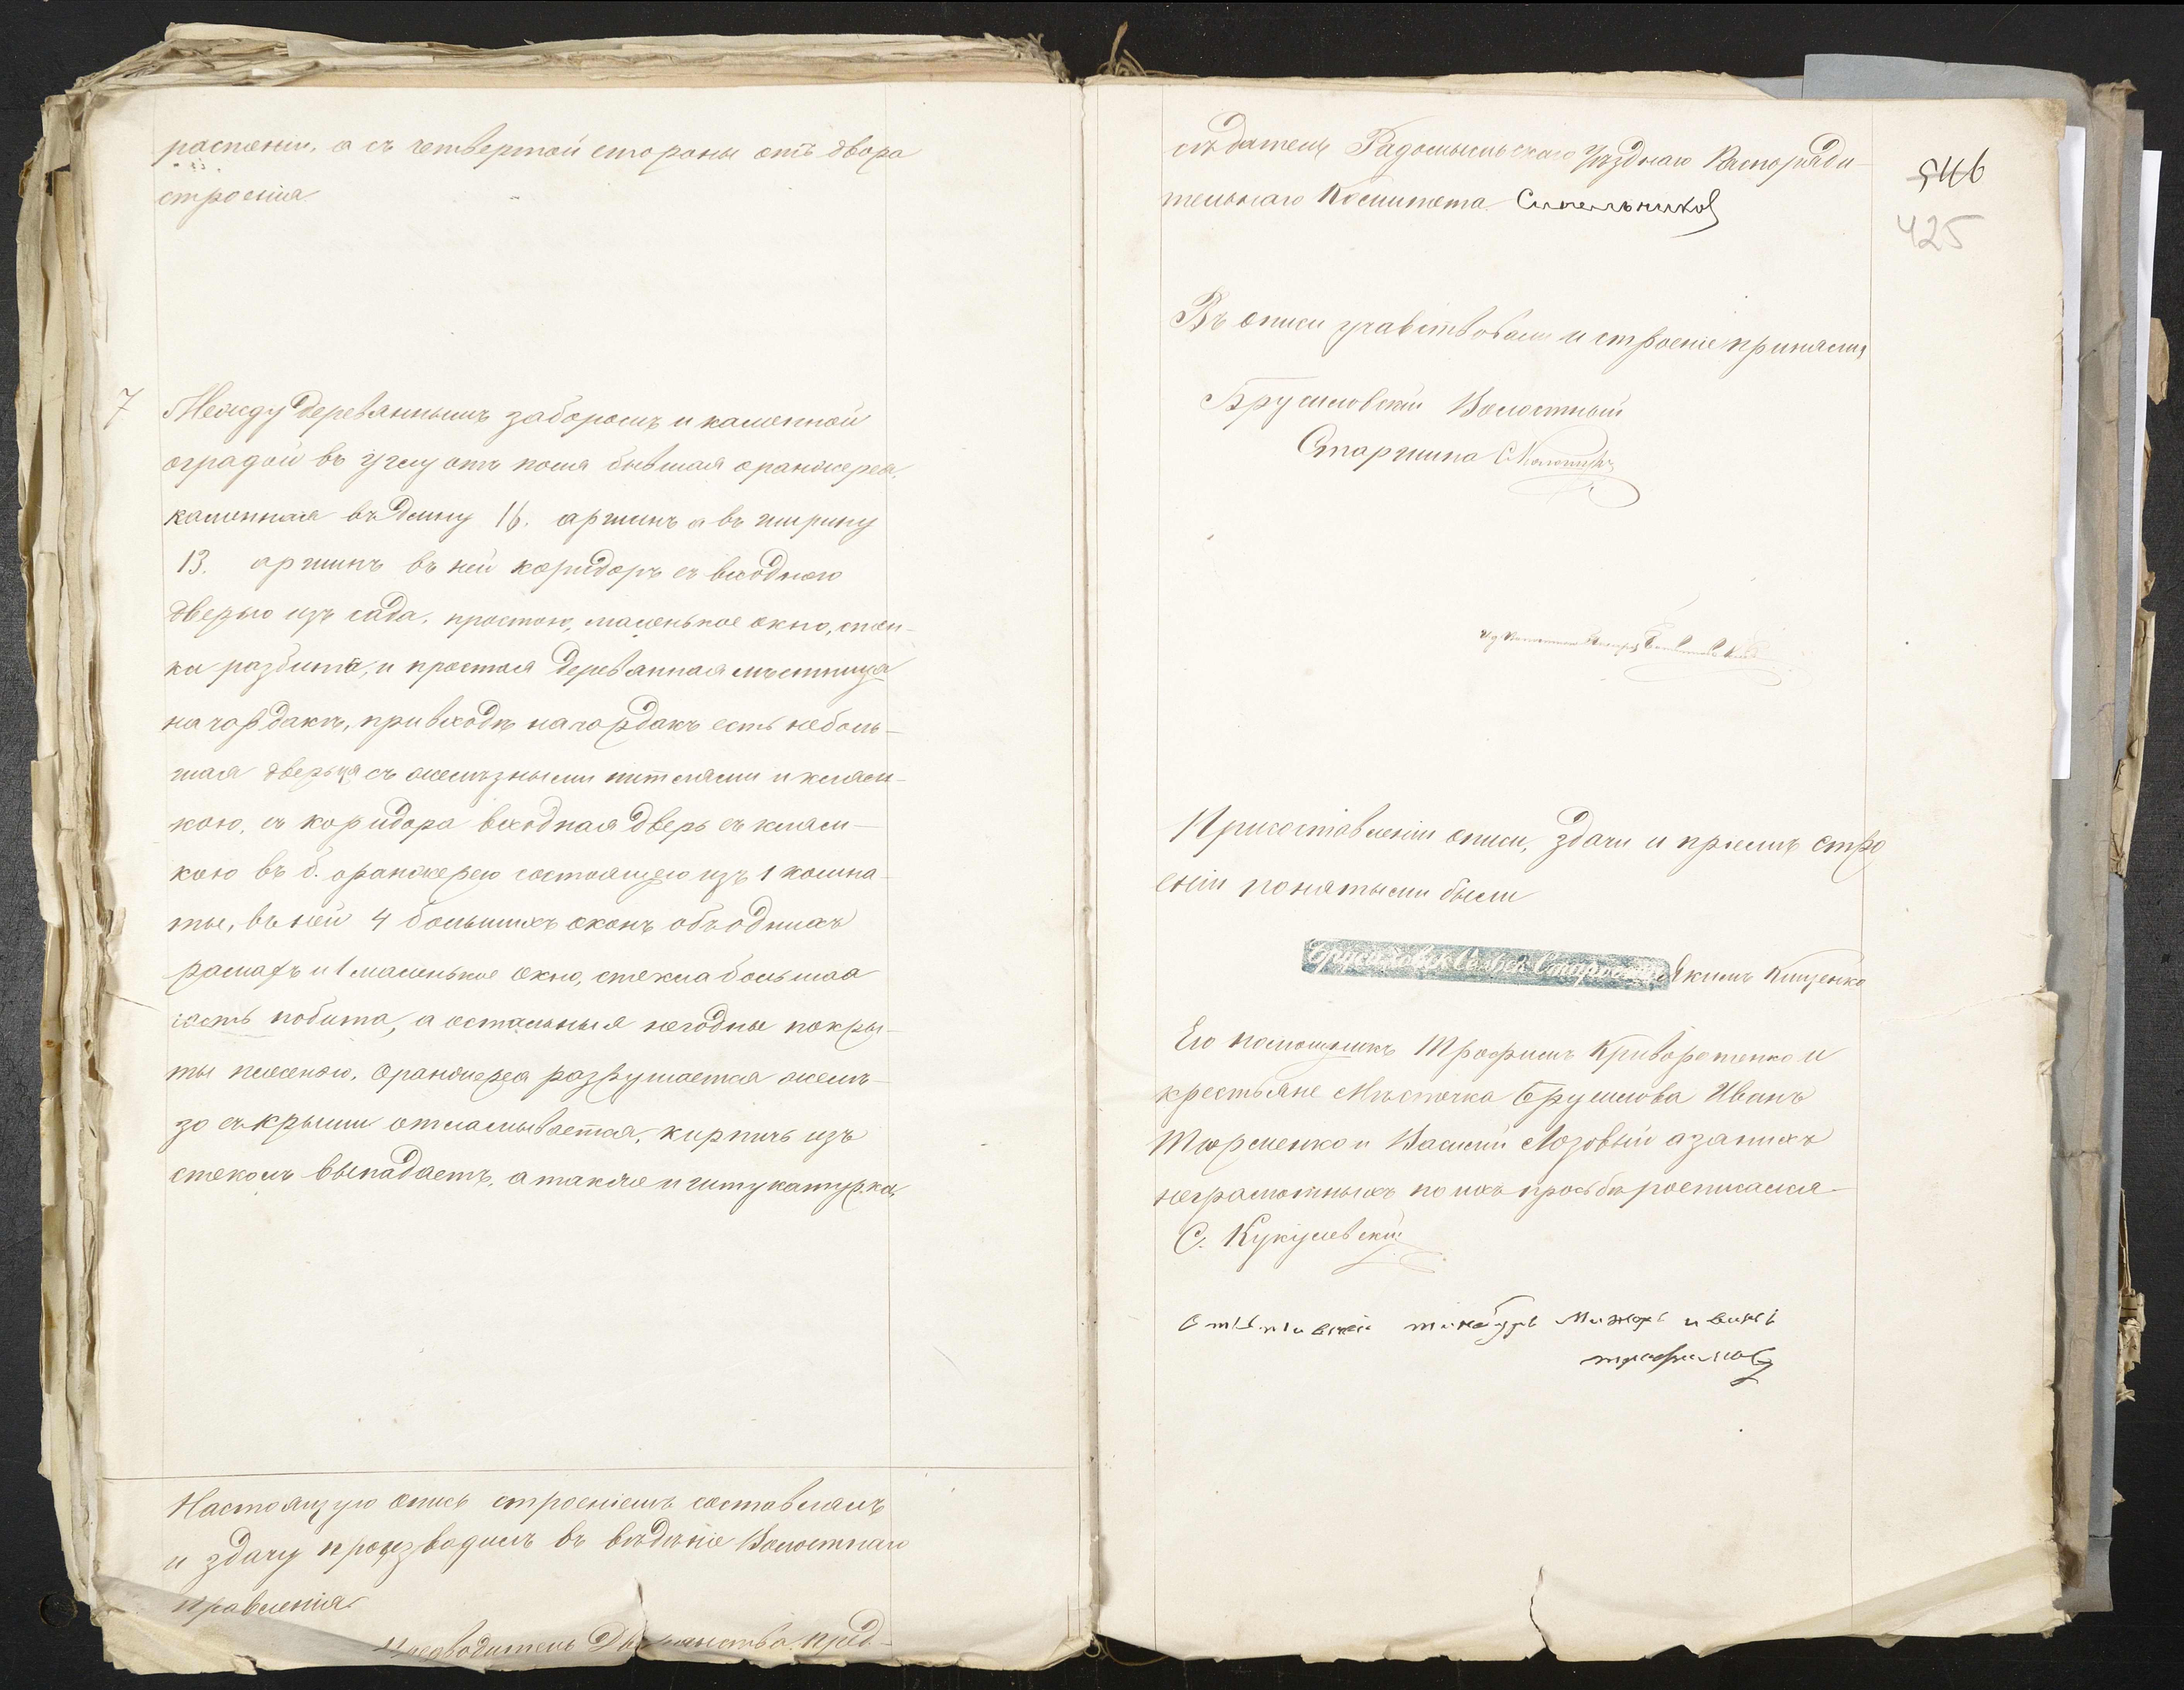 растеній, а съ четвертой стороны отъ двора
строенія
7 Между деревяннымъ заборомъ и каменной
оградой въ углу отъ поля бывшая оранжерея,
каменная въ длину 16. аршинъ а въ ширину
13. аршинъ въ ней коридоръ съ входною
дверью изъ сада, простою, маленькое окно,
ка разбита, и простая деревянная лѣстница
на чордакъ, при входѣ на чордакъ есть неболь-
шая дверца съ желѣзными питлями и клям-
кою, съ коридора входная дверь съ клям-
кою въ б. оранжерею состоящую изъ 1 комна-
ты, въ ней 4 большихъ оконъ объ однихъ
рамахъ и 1 маленькое окно, стекла большая
часть побита, а остальныя негодные покры-
ты плесенью. Оранжерея разрушается желѣ-
зо съ крыши отламывается, кирпичъ изъ
стеколъ выпадаетъ, а также и штукатурка.
Настоящую опись строеніемъ составлялъ
и здачу произвадилъ въ вѣдѣніе Волостнаго
правленія
Предводитель Дворянства. пред-
сѣдатель Радомысльскаго Уѣзднаго Распоряди-
тельнаго Комитета Синельников
546
425
Въ описи учавствовали и строеніе приняли,
Брусиловскій Волостный
Старшина
При составленіи описи, здачи и пріемѣ стро
еній понятыми были
Брусиловск. Сельск. Староста Якимъ Кищенко
Его помошникъ Трофимъ Криворотенко и
крестьяне Мѣстечка Брусилова Иванъ
Тюрменко и Василій Лозовый а за нихъ
неграмотныхъ по ихъ прозьбѣ росписался
С. Кукулевскій